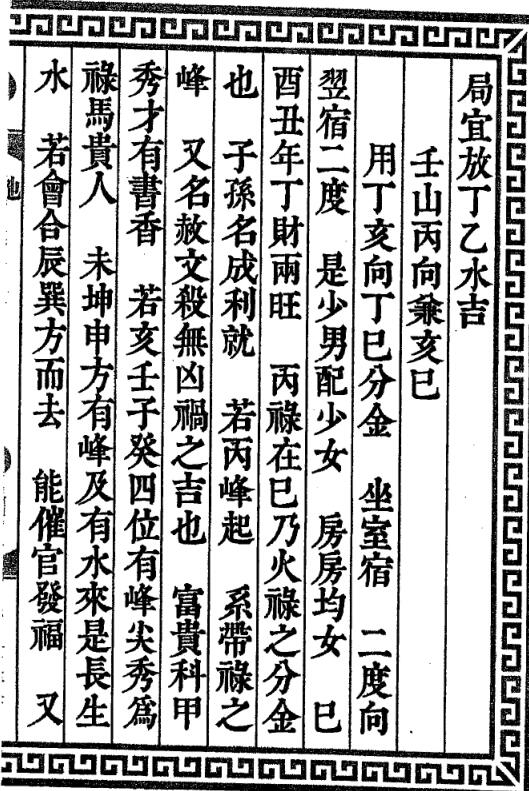 局宜放丁乙水吉
壬山丙向兼亥巳
用丁亥向丁巳分金 坐室宿 二度向
翌宿二度 是少男配少女 房房均女 巳
酉丑年丁財兩旺 丙祿在巳乃火祿之分金
也 子孫名成利就 若丙峰起 系帶祿之
峰 又名赦文殺無凶禍之吉也 富貴科甲
秀才有書香 若亥壬子癸四位有峰尖秀爲
祿馬貴人 未坤申方有峰及有水來是長生
水 若會合辰巽方而去 能催官發福 又